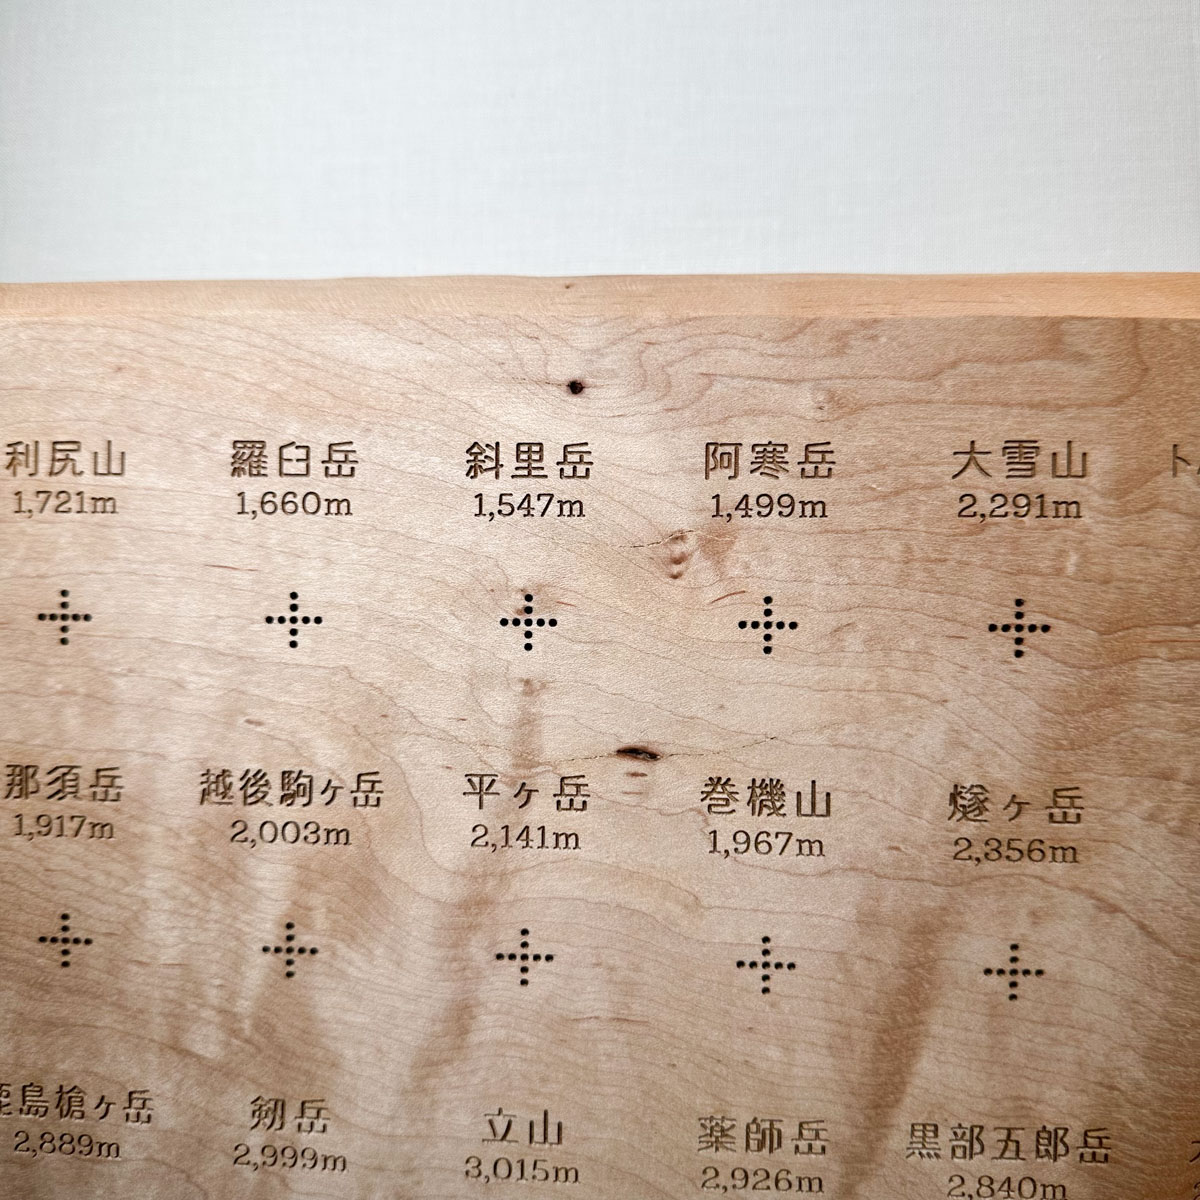 利尻山 羅臼岳 斜里岳 阿寒岳 大雪山 ト
1,721m 1,660m 1,547m 1,499m 2,291m
那須岳 越後駒ヶ岳 平ヶ岳 巻機山 燧ヶ岳
1,917m 2,003m 2,141m 1,967m 2,356m
鹿島槍ヶ岳 剱岳 立山 薬師岳 黒部五郎岳
2,889m 2,999m 3,015m 2,926m 2,840m